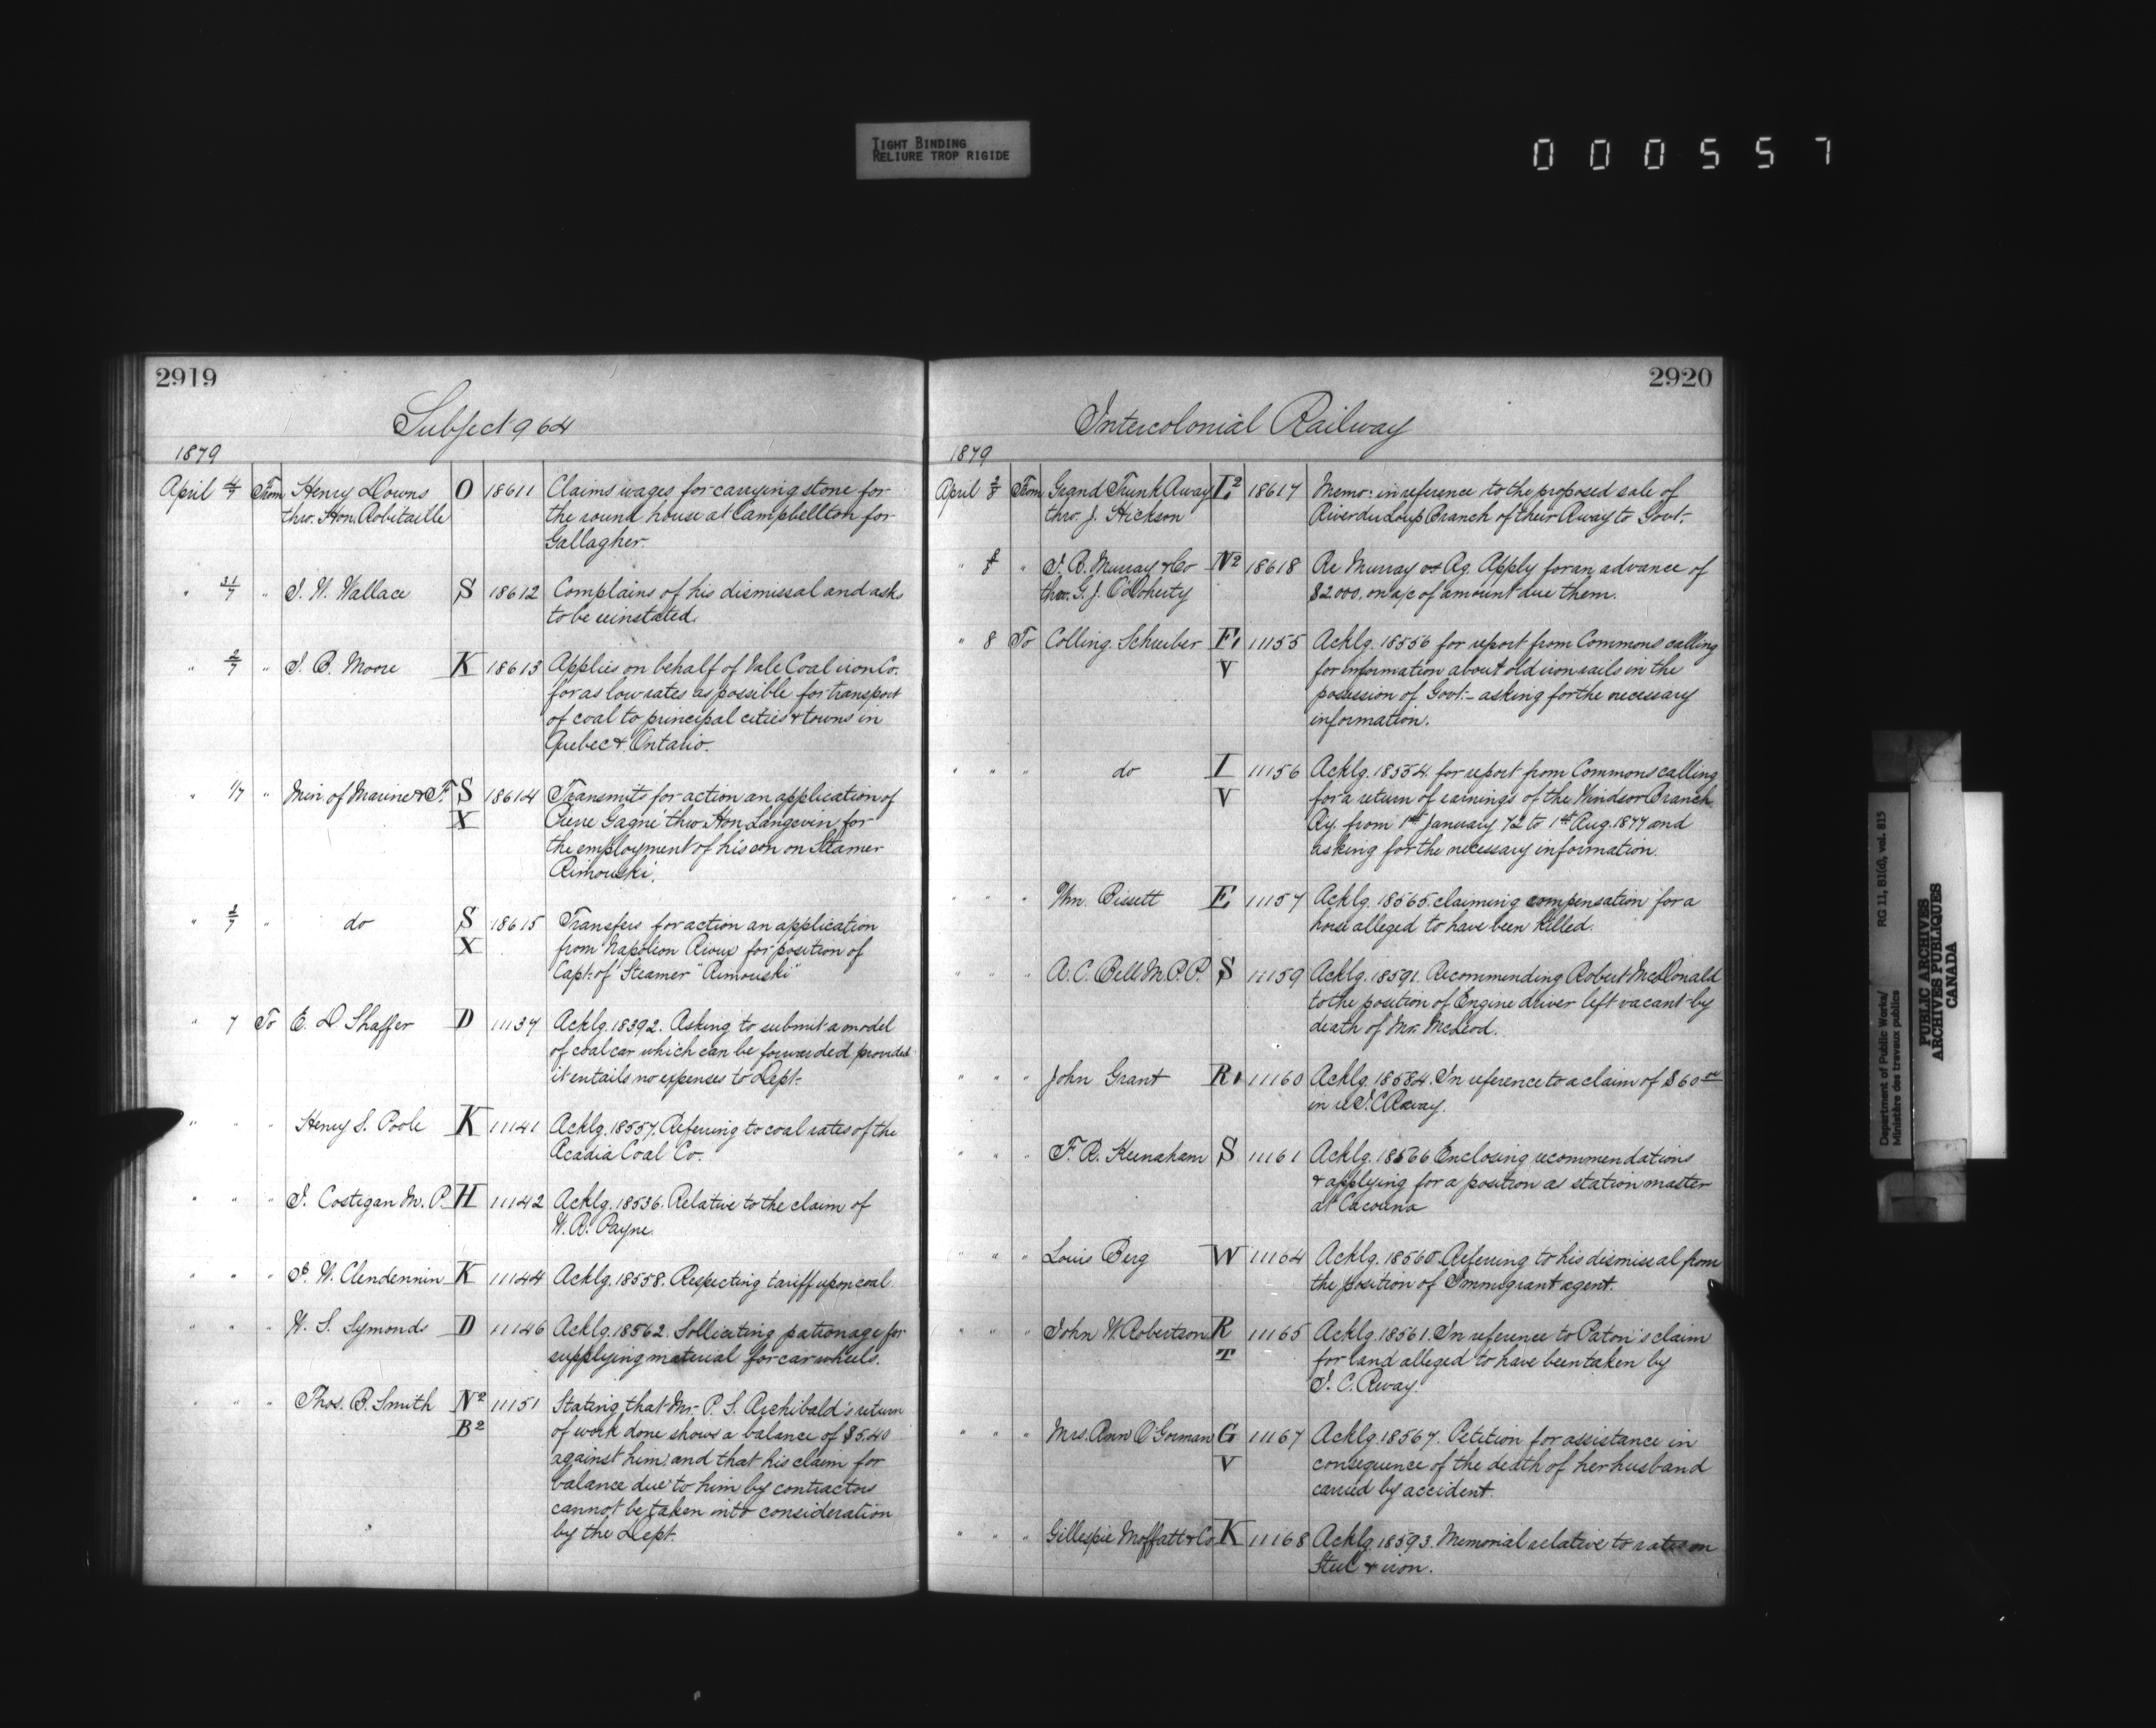 TIGHT BINDING
RELIURE TROP RIGIDE
000557
2919
Subject 964
1879
April 4/7 From Henry Downs O 18611 Claims wages for carrying stone for
thro. Hon. Robitaille the round house at Campbellton for
Gallagher.
" 31/7 " J. W. Wallace S 18612 Complains of his dismissal and asks
to be reinstated.
" 2/7 " J. B. Moore K 18613 Applies on behalf of Vale Coal iron Co.
for as low rates as possible for transport
of coal to principal cities & towns in
Quebec & Ontario.
" 1/7 " Min. of Marine & F. S 18614 Transmits for action an application of
X Pierre Gagné thro Hon. Langevin for
the employment of his son on Steamer
Rimouski.
" 2/7 " do S 18615 Transfers for action an application
X from Napoleon Rioux for position of
Capt. of Steamer "Rimouski"
" 7 To E. D Shaffer D 11137 Acklg. 18392. Asking to submit a model
of coal car which can be forwarded provided
it entails no expenses to Dept.
" " " Henry S. Poole K 11141 Acklg. 18557. Referring to coal rates of the
Acadia Coal Co.
" " " J. Costegan M. P. H 11142 Acklg. 18536. Relative to the claim of
W. R. Payne.
" " " W. Clendennin K 11144 Acklg. 18558. Respecting tariff upon coal.
" " " W. S. Symonds D 11146 Acklg. 18562. Solliciting patronage for
supplying material for car wheels.
" " " Thos. B. Smith N2 11151 Stating that Mr. P. S. Archibald's return
B2 of work done shows a balance of $5.40
against him and that his claim for
balance due to him by contractors
cannot be taken into consideration
by the Dept.
2920
Intercolonial Railway
1879
April 2/8 From Grand Trunk Rway L2 18617 Memo: in reference to the proposed sale of
thro. J. Hickson River du Loup Branch of their Rway to Govt.
" 8 " J. B. Murray & Co N2 18618 Re Murray vs Rg. Apply for an advance of
thro. G. J. O'Doherty $2.000. on a/c of amount due them.
" 8 To Colling. Schreiber F1 11155 Acklg. 18556 for report from Commons calling
V for information about old iron rails in the
possession of Govt. - asking for the necessary
information.
" " " do I 11156 Acklg. 18554. for report from Commons calling
V for a return of earnings of the Windsor Branch
Ry. from 1st January 72 to 1st Aug. 1877 and
asking for the necessary information.
" " " Wm. Bissett E 11157 Acklg. 18565. claiming compensation for a
horse alleged to have been killed.
" " " A. C. Bell M.P.P. S 11159 Acklg. 18591. Recommending Robert McDonald
to the position of Engine driver left vacant by
death of Mr. McLeod.
" " " John Grant R1 11160 Acklg. 18584. In reference to a claim of $60
in re I. C Rway.
" " " F. R. Keenaham S 11161 Acklg. 18566 Enclosing recommendations
& applying for a position as station master
at Cacouna
" " " Louis Berg W 11164 Acklg. 18560. Referring to his dismissal from
the position of Immigrant agent.
" " " John W. Robertson R 11165 Acklg. 18561. In reference to Paton's claim
T for land alleged to have been taken by
I. C. Rway.
" " " Mrs. Ann O'Gorman G 11167 Acklg. 18567. Petition for assistance in
V consequence of the death of her husband
carried by accident.
" " " Gillespie Moffatt & Co K 11168 Acklg. 18593. Memorial relative to rates on
Steel & iron.
Department of Public Works/ RG 11, B1(d), vol. 815
Ministère des travaux publics
PUBLIC ARCHIVES
ARCHIVES PUBLIQUES
CANADA